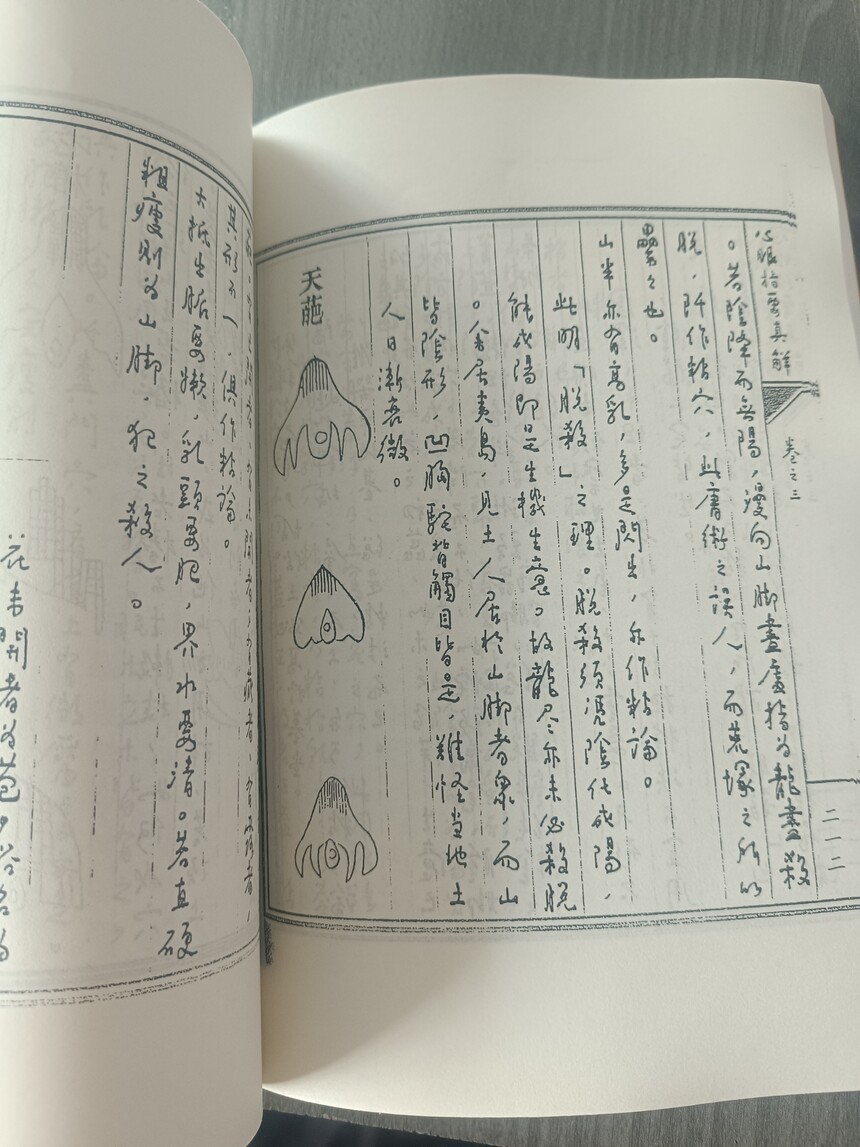 心眼指要真解
卷之三
二一二
。若陰降而無陽，漫向山脚盡處指為龍盡殺
脫，阡作粘穴，此庸術之誤人，而荒塚之所以
纍々也。
山半亦有高乳，多是閃生，亦作粘論。
此明「脫殺」之理。脫殺須憑陰化成陽，
能成陽即是生機生意。故龍尽亦未必殺脫
。余居夷島，見土人居於山脚者衆，而山
皆陰形，凹胸駝背觸目皆是，難怪当地土
人日漸衰微。
天葩
其形不一，俱作粘論。
大抵生脈要嫩，乳頭要肥，界水要清。若直硬
粗瘦則為山脚，犯之殺人。
花未開者為葩，俗名為